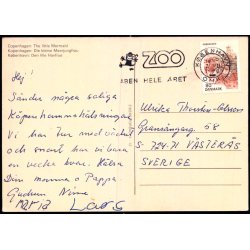 Copenhagen: The little Mermaid
Kopenhagen: Die kleine Meerjungfrau
København: Den lille Havfrue
ZOO
ÅBEN HELE ÅRET
KØBENHAVN
DANMARK
Hej!
Sänder några soliga
Köpenhamnshälsningar.
Vi har det
och snart har vi bara
en vecka kvar. Hälsa
Din mamma o Pappa.
Gudrun
Lars
Ulrika
58
S-724 71 VÄSTERÅS
SVERIGE